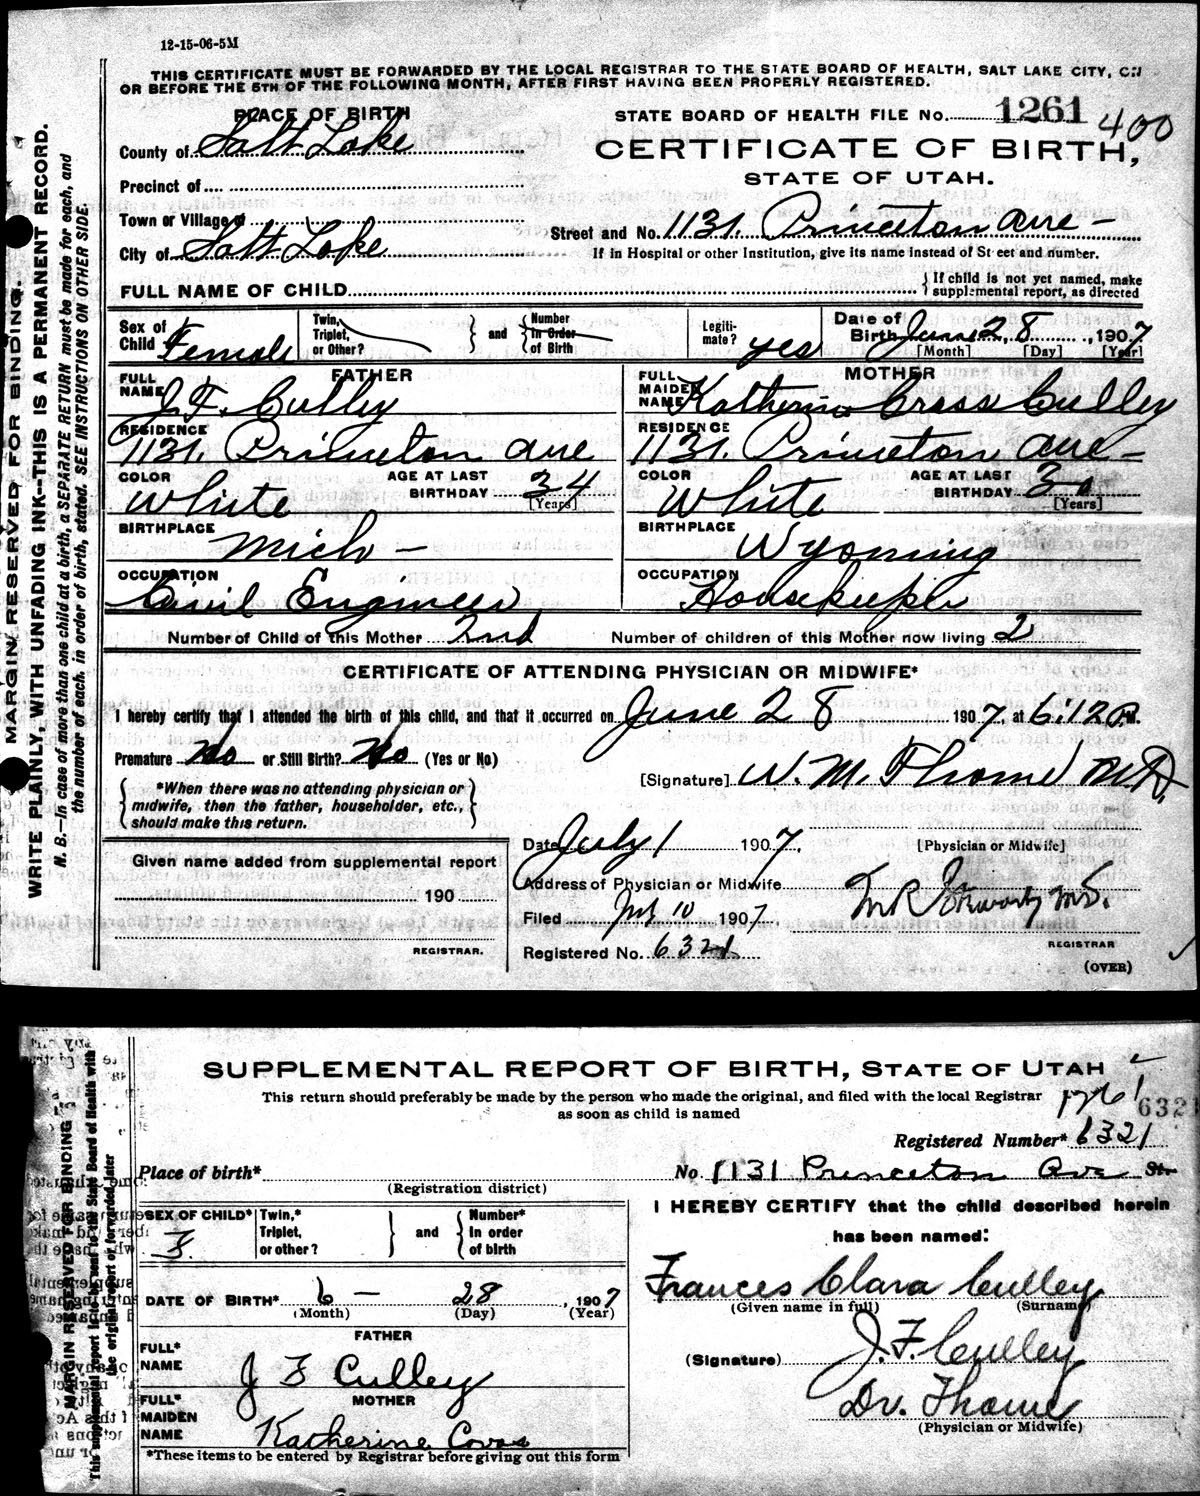 12-15-06-5M
THIS CERTIFICATE MUST BE FORWARDED BY THE LOCAL REGISTRAR TO THE STATE BOARD OF HEALTH, SALT LAKE CITY, ON
OR BEFORE THE 5TH OF THE FOLLOWING MONTH, AFTER FIRST HAVING BEEN PROPERLY REGISTERED.
MARGIN RESERVED FOR BINDING.
WRITE PLAINLY, WITH UNFADING INK--THIS IS A PERMANENT RECORD.
N. B.—In case of more than one child at a birth, a SEPARATE RETURN must be made for each, and
the number of each, in order of birth, stated. SEE INSTRUCTIONS ON OTHER SIDE.
PLACE OF BIRTH
STATE BOARD OF HEALTH FILE No. 1261 400
County of Salt Lake
CERTIFICATE OF BIRTH,
STATE OF UTAH.
Precinct of
Town or Village of
Street and No. 1131. Princeton ave -
City of Salt Lake
If in Hospital or other Institution, give its name instead of Street and number.
FULL NAME OF CHILD
If child is not yet named, make
supplemental report, as directed
Sex of Child Female
Twin, Triplet, or Other?
and
Number In Order of Birth
Legiti-mate? yes
Date of Birth June 28, 1907
[Month] [Day] [Year]
FATHER
FULL NAME J. F. Culley
RESIDENCE
1131. Princeton ave
COLOR White
AGE AT LAST BIRTHDAY 34
[Years]
BIRTHPLACE
Mich -
OCCUPATION
Civil Engineer
MOTHER
FULL MAIDEN NAME Katherine Cross Culley
RESIDENCE
1131. Princeton ave -
COLOR White
AGE AT LAST BIRTHDAY 30
[Years]
BIRTHPLACE
Wyoming
OCCUPATION
Housekeeper
Number of Child of this Mother 2nd Number of children of this Mother now living 2
CERTIFICATE OF ATTENDING PHYSICIAN OR MIDWIFE*
I hereby certify that I attended the birth of this child, and that it occurred on June 28 1907, at 6:12 P.M.
Premature No or Still Birth? No (Yes or No)
[Signature] W. M. Thome M.D.
*When there was no attending physician or
midwife, then the father, householder, etc.,
should make this return.
Date July 1 1907.
[Physician or Midwife]
Given name added from supplemental report
190
REGISTRAR.
Address of Physician or Midwife
Filed July 10 1907
Registered No. 6321
M.D.
REGISTRAR
(OVER)
SUPPLEMENTAL REPORT OF BIRTH, STATE OF UTAH
This return should preferably be made by the person who made the original, and filed with the local Registrar
as soon as child is named
1261
632
MARGIN RESERVED FOR BINDING
This supplemental report is to be sent to the State Board of Health with
the original report or forwarded later
Registered Number* 6321
Place of birth*
No 1131 Princeton Ave Str.
(Registration district)
SEX OF CHILD* F.
Twin,* Triplet, or other?
and
Number* In order of birth
I HEREBY CERTIFY that the child described herein
has been named:
Frances Clara Culley
(Given name in full) (Surname)
DATE OF BIRTH* 6 - 28, 1907
(Month) (Day) (Year)
FATHER
FULL* NAME J F Culley
MOTHER
FULL* MAIDEN NAME Katherine Cross
(Signature) J. F. Culley
Dr. Thome
(Physician or Midwife)
*These items to be entered by Registrar before giving out this form